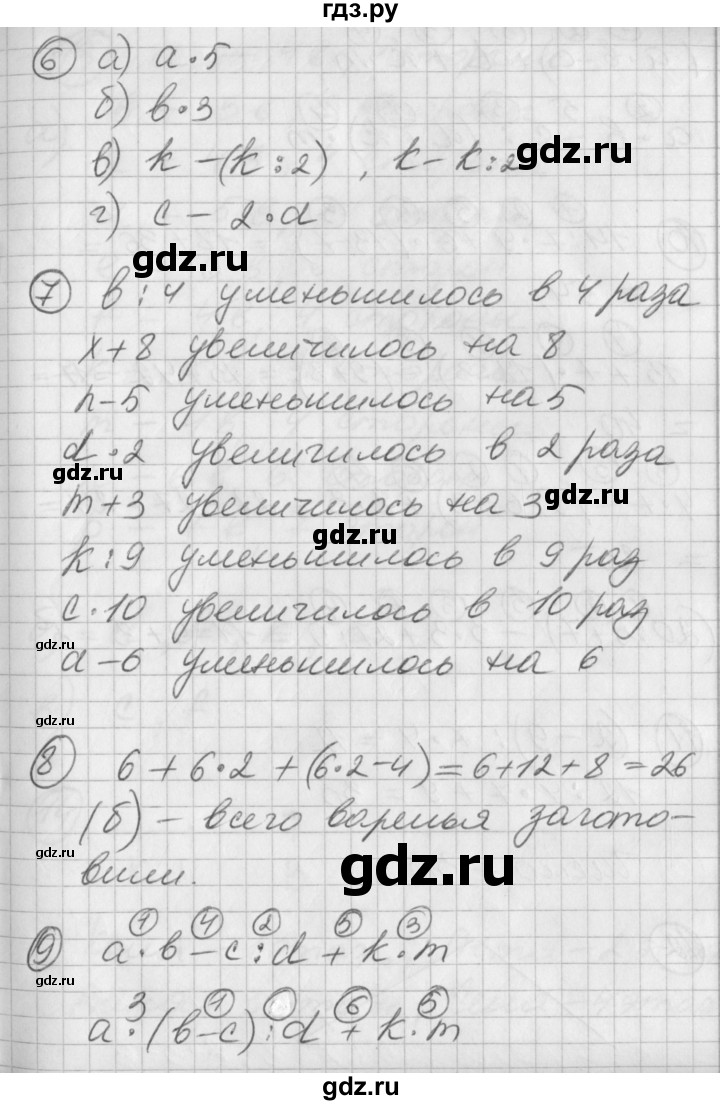 гдз.ру
6 а) a·5
б) b·3
в) k-(k:2), k-k:2
gdz.ru
г) c-2·d
gdz.ru
7 b:4 уменьшилось в 4 раза
x+8 увеличилось на 8
n-5 уменьшилось на 5
d·2 увеличилось в 2 раза
gdz.ru
m+3 увеличилось на 3
gdz.ru
gdz.ru
k:9 уменьшилось в 9 раз
c·10 увеличилось в 10 раз
gdz.ru
d-6 уменьшилось на 6
gdz.ru
8 6+6·2+(6·2-4)=6+12+8=26
(б) - всего варенья загото-
gdz.ru
вили.
gdz.ru
1 4 2 5 3
9 a·b-c:d+k·m
gdz.ru
3 1 6 5
a·(b-c):d+k·m
gdz.ru
gdz.ru